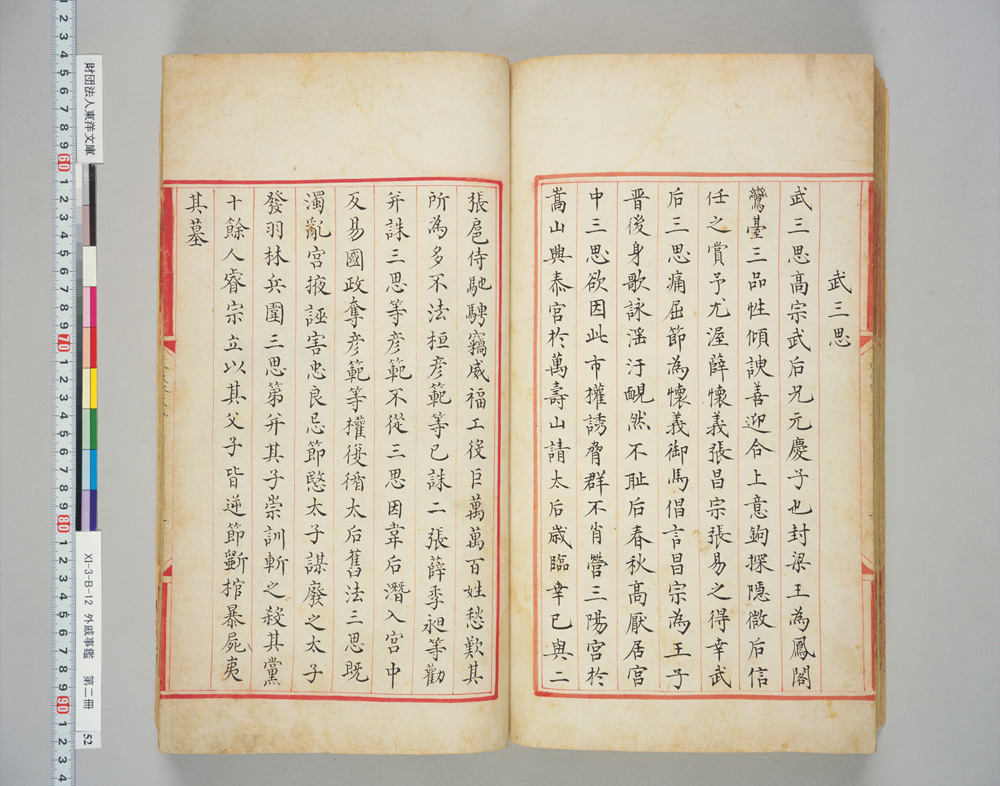 武三思
武三思高宗武后兄元慶子也封梁王為鳳閣
鸞臺三品性傾諛善迎合上意鉤探隱微后信
任之賞予尤渥薛懷義張昌宗張易之得幸武
后三思痛屈節為懷義御馬倡言昌宗為王子
晉後身歌詠滛汙靦然不耻后春秋高厭居宮
中三思欲因此市權誘脅群不肖營三陽宮於
嵩山興泰宮於萬壽山請太后歲臨幸已與二
張扈侍馳騁竊威福工役巨萬萬百姓愁歎其
所為多不法桓彦範等已誅二張薛季昶等勸
并誅三思等彦範不從三思因韋后潛入宮中
反易國政奪彦範等權復循太后舊法三思既
濁亂宮掖誣害忠良忌節愍太子謀廢之太子
發羽林兵圍三思第并其子崇訓斬之殺其黨
十餘人睿宗立以其父子皆逆節斵棺暴屍夷
其墓
財団法人東洋文庫
XI-3-B-12 外戚事鑑 第二冊
52